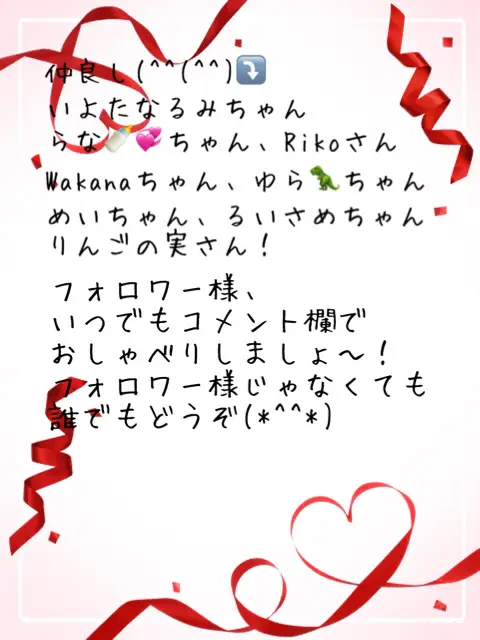 仲良し(^^(^^)⤵️
いよたなるみちゃん
らな🍼💞ちゃん、Rikoさん
Wakanaちゃん、ゆら🦖ちゃん
めいちゃん、るいさめちゃん
りんごの実さん！
フォロワー様、
いつでもコメント欄で
おしゃべりしましょ〜！
フォロワー様じゃなくても
誰でもどうぞ(*^^*)